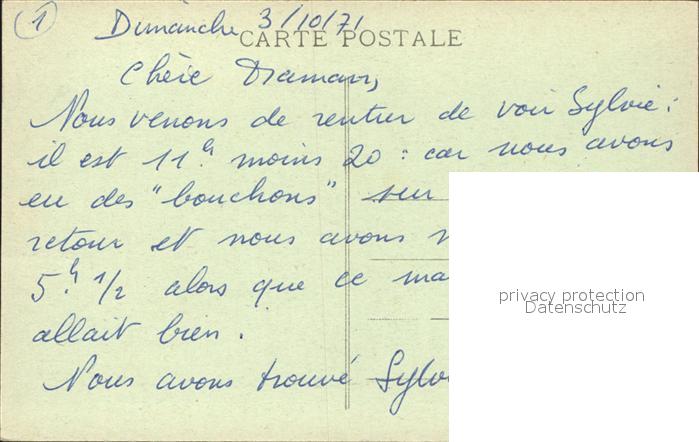 ① Dimanche 3/10/71
CARTE POSTALE
Chère Maman,
Nous venons de rentrer de voir Sylvie :
il est 11h moins 20 : car nous avons
eu des "bouchons" sur
retour et nous avons
5h 1/2 alors que ce
allait bien.
Nous avons trouvé
privacy protection
Datenschutz